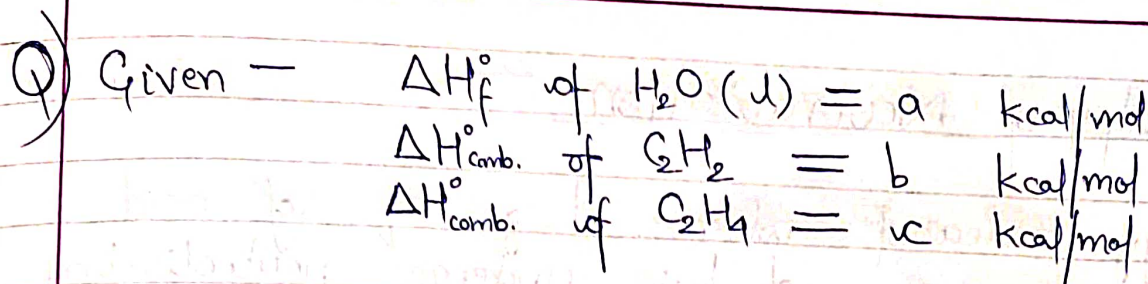 Q) Given - ΔH°f of H₂O (l) = a kcal/mol
ΔH°comb. of C₂H₂ = b kcal/mol
ΔH°comb. of C₂H₄ = c kcal/mol